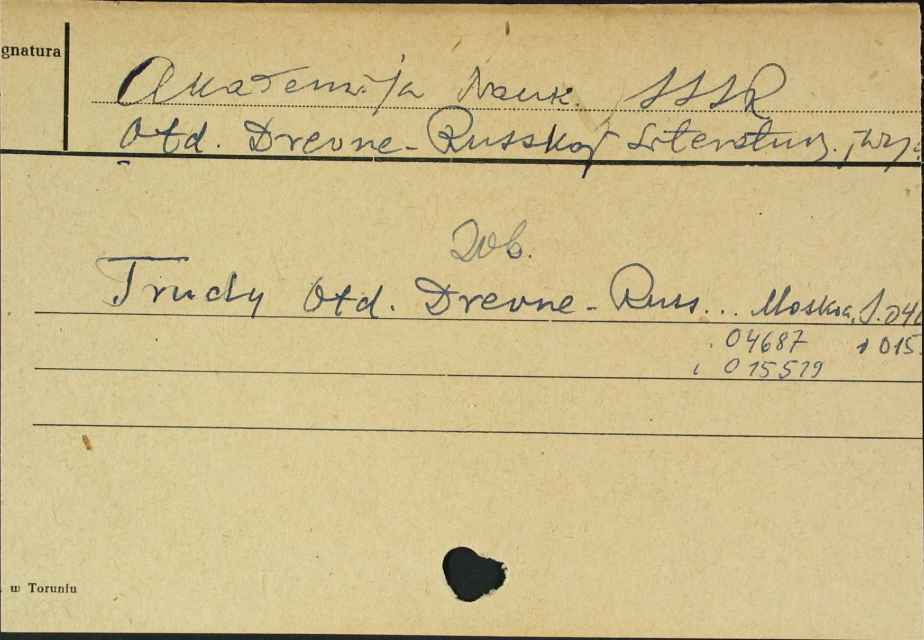 gnatura
Akademija Nauk. SSSR
Otd. Drevne-Russkoj Literatury.
Zob.
Trudy Otd. Drevne-Russ... Moskva, S. 04
04687 015
015519
w Toruniu